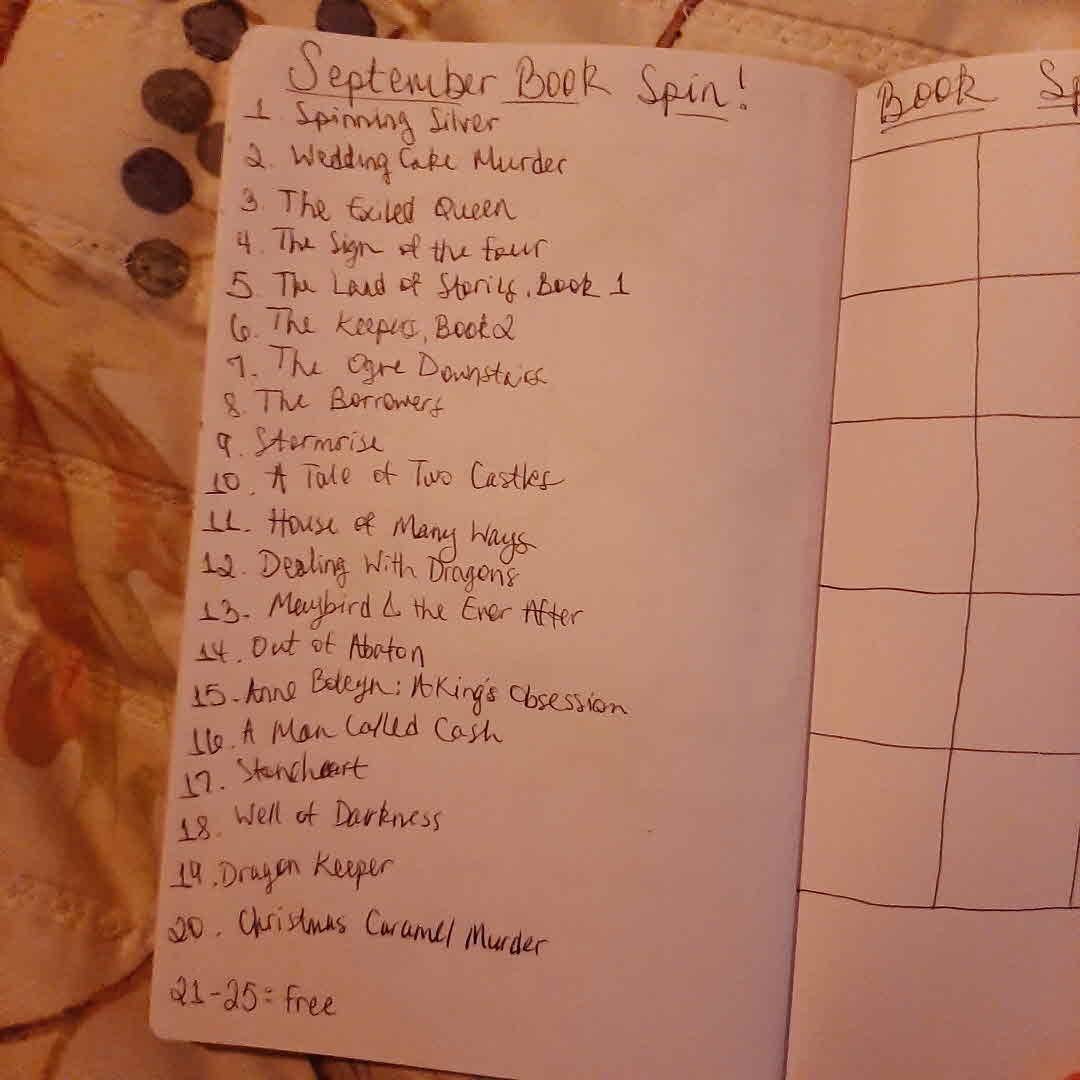 September Book Spin!
1. Spinning Silver
2. Wedding Cake Murder
3. The Exiled Queen
4. The Sign of the Four
5. The Land of Stories, Book 1
6. The Keepers, Book 2
7. The Ogre Downstairs
8. The Borrowers
9. Stormrise
10. A Tale of Two Castles
11. House of Many Ways
12. Dealing With Dragons
13. Maybird & the Ever After
14. Out of Abaton
15. Anne Boleyn: A King's Obsession
16. A Man Called Cash
17. Stoneheart
18. Well of Darkness
19. Dragon Keeper
20. Christmas Caramel Murder
21-25 = Free
Book Sp